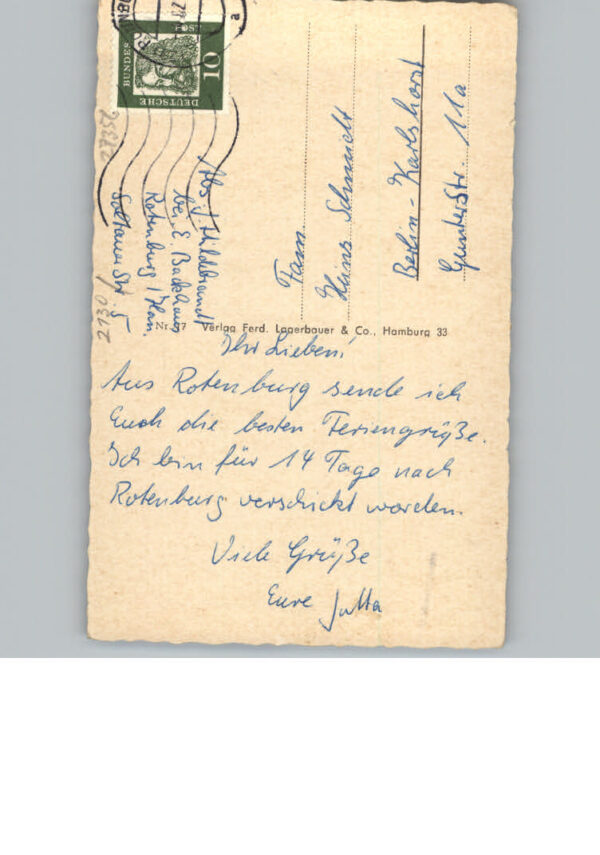 Ihr Lieben!
Aus Rotenburg sende ich
Euch die besten Feriengrüße.
Ich bin für 14 Tage nach
Rotenburg verschickt worden.
Viele Grüße
Eure Jutta
Fam.
Heinz Schmidt
Berlin-Karlshorst
Gunterstr. 11a
Abs. J. Hildebrandt
bei E. Backhaus
Rotenburg / Han.
Soltauer Str. 5
Verlag Ferd. Lagerbauer & Co., Hamburg 33
DEUTSCHE
BUNDES
10
a
2130/
27356